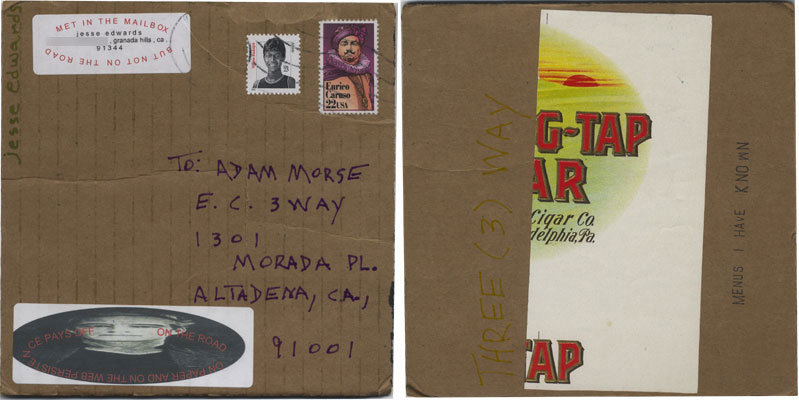 MET IN THE MAILBOX
jesse edwards
, granada hills, ca.
91344
BUT NOT ON THE ROAD
jesse edwards
23
Enrico
Caruso
22USA
TO: ADAM MORSE
E. C. 3 WAY
1301
MORADA PL.
ALTADENA, CA.,
91001
CE PAYS OFF
ON THE ROAD
ON PAPER AND ON THE WEB PERSISTEN
THREE (3) WAY
G-TAP
AR
Cigar Co.
delphia, Pa.
TAP
MENUS I HAVE KNOWN